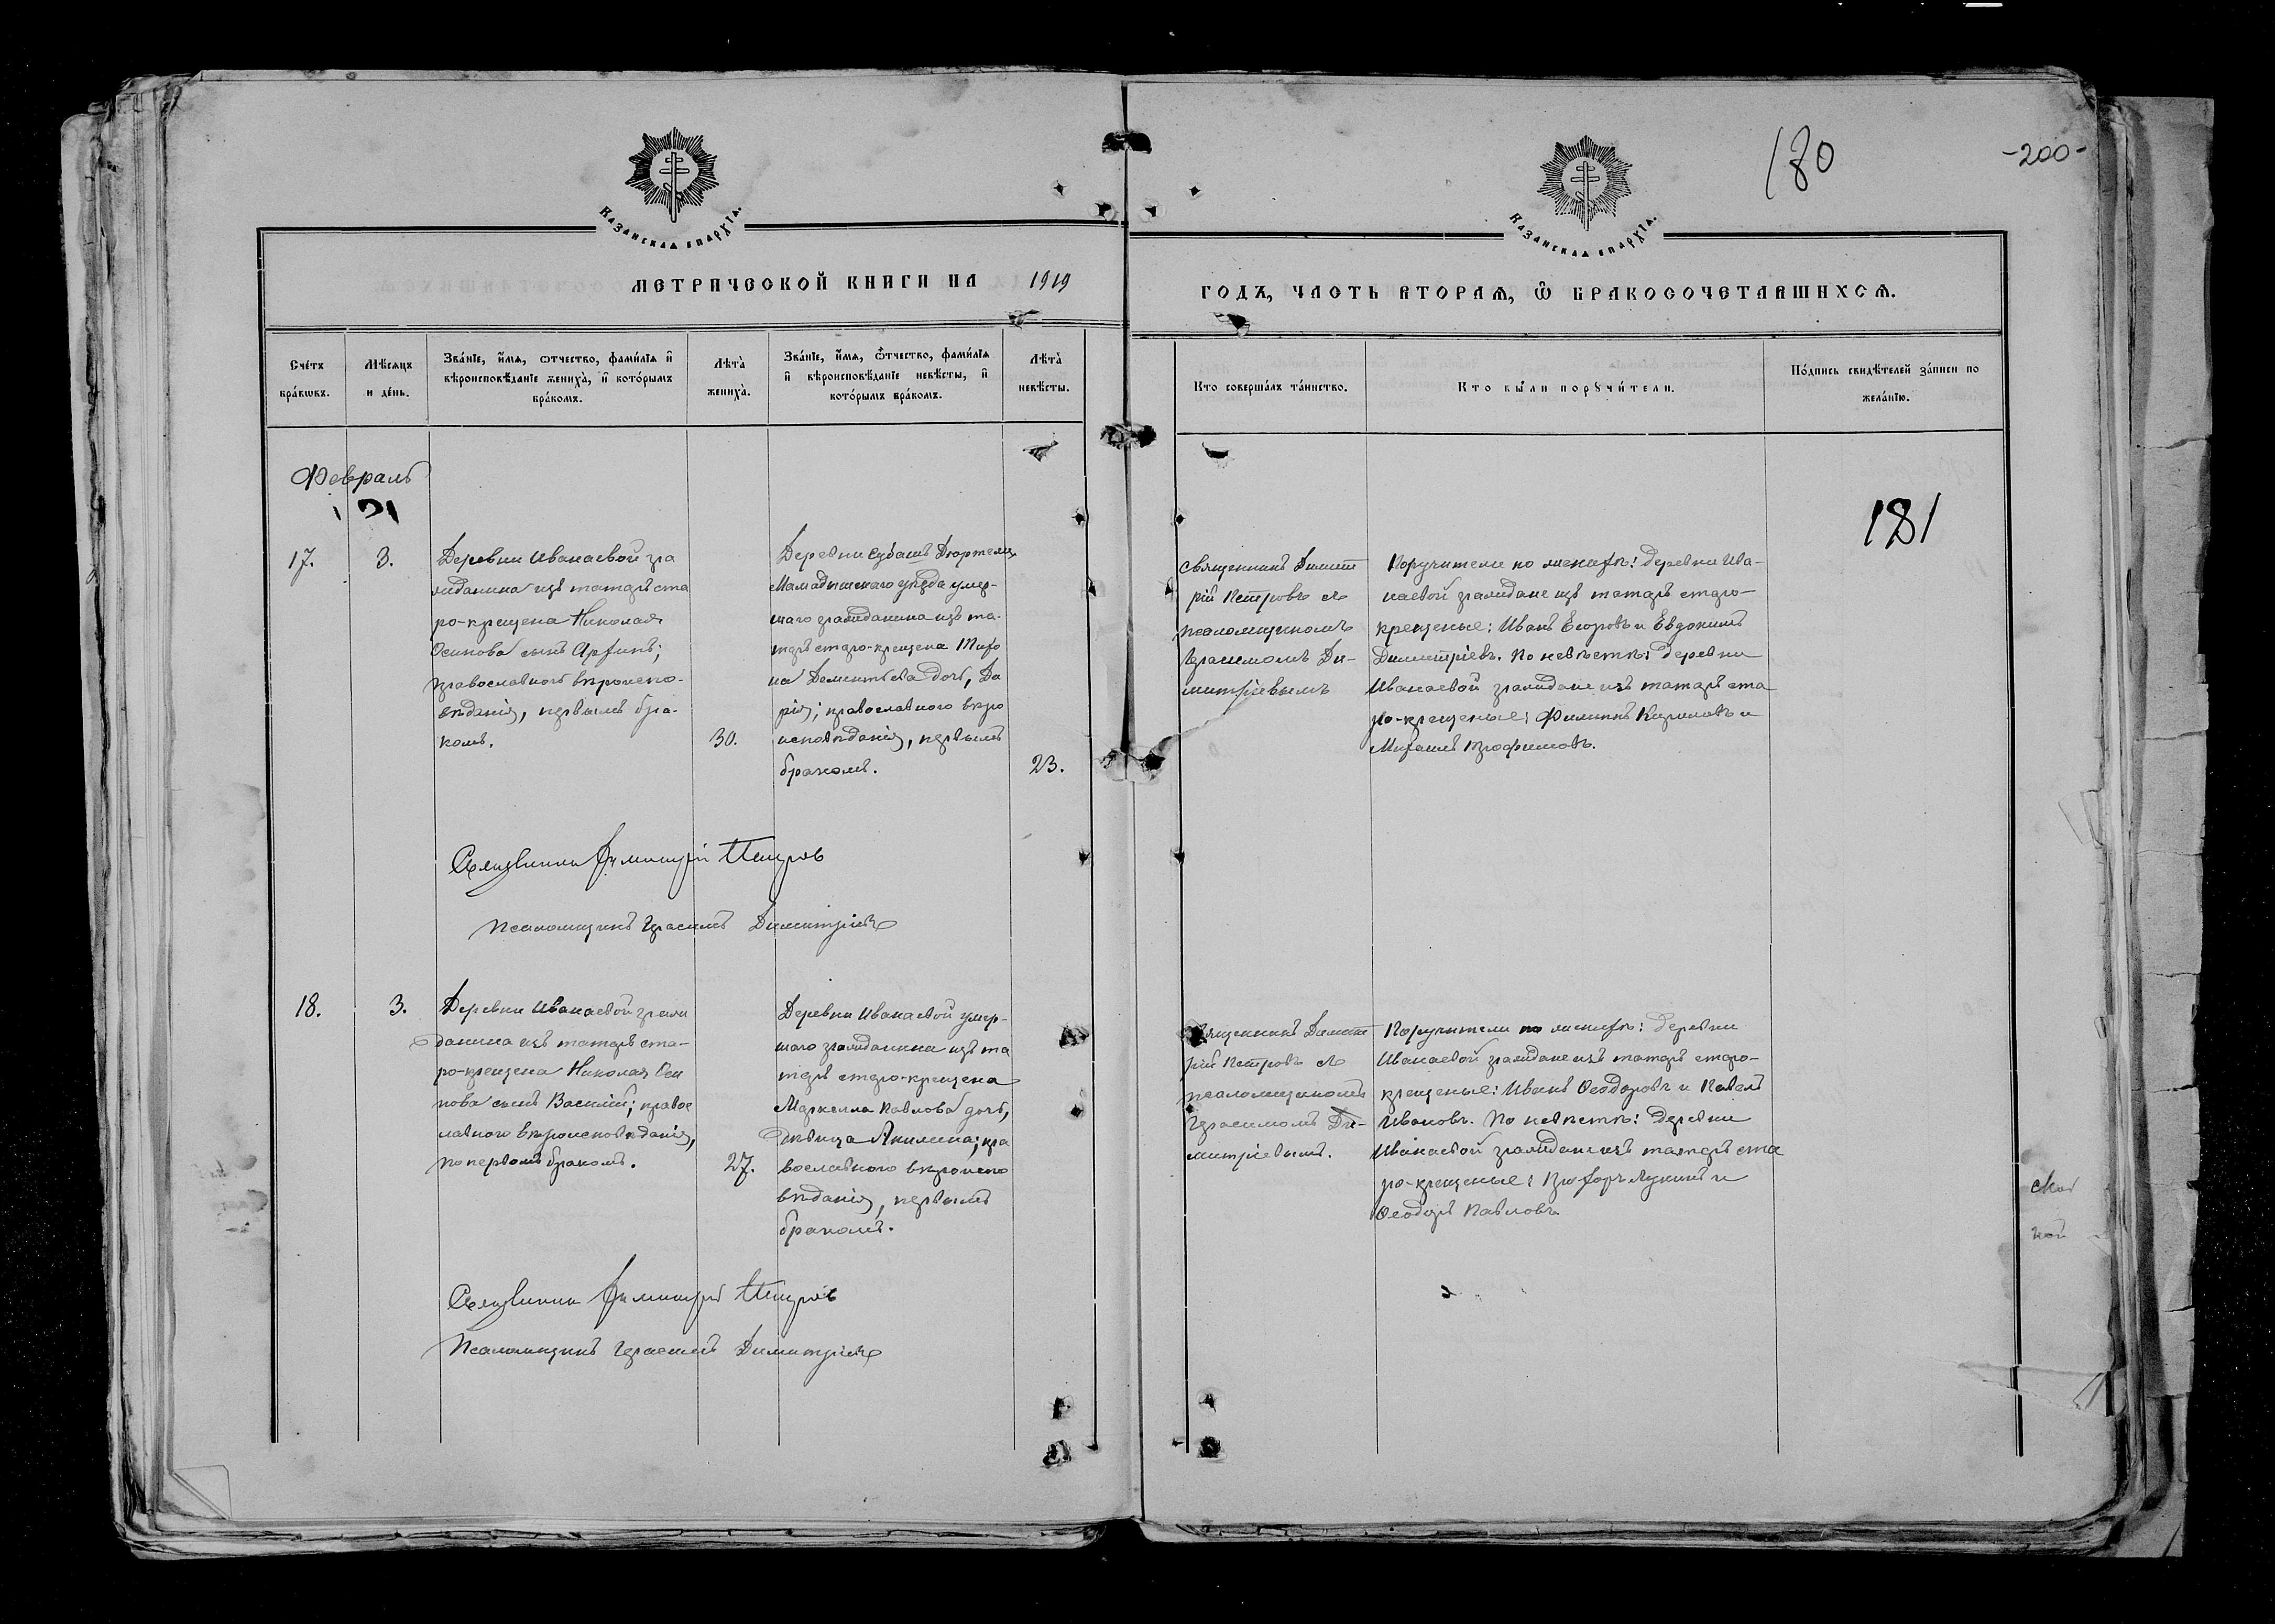 180
-200-
Казанская епархія.
Казанская епархія.
МЕТРИЧЕСКОЙ КНИГИ НА 1919
ГОДЪ, ЧАСТЬ ВТОРАЯ, Ѿ БРАКОСОЧЕТАВШИХСЯ.
Сче́тъ бра́кѡвъ.
Мѣ́сяцъ и де́нь.
Зва́нїе, и҆́мя, ѻтчество, фами́лїя и҆
вѣроисповѣ́данїе жениха̀, и҆ кото́рымъ
бра́комъ.
Лѣта̀ жениха̀.
Зва́нїе, и҆́мя, ѻ҆́тчество, фами́лїя
и҆ вѣроисповѣ́данїе невѣ́сты, и҆
кото́рымъ бра́комъ.
Лѣта̀ невѣ́сты.
Кто соверша́лъ та́инство.
Кто бы́ли порꙋчи́тели.
По́дпись свидѣ́телей за́писи по
жела́нїю.
Февраль
181
17.
3.
Деревни Иванаевой гра
жданина изъ татаръ ста
ро-крещена Николая
Осипова сынъ
православнаго вѣроиспо-
вѣданія, первымъ бра-
комъ.
30.
Деревни Субашъ
Мамадышскаго уѣзда умер-
шаго гражданина изъ та-
таръ старо-крещена Тихо
на Дементьева дочь, Да
рія; православнаго вѣро
исповѣданія, первымъ
бракомъ.
23.
Священникъ Димит
рій Петровъ съ
псаломщикомъ
Герасимомъ Ди-
митріевымъ
Поручители по женихѣ: деревни Ива-
наевой граждане изъ татаръ старо-
крещеные: Иванъ Егоровъ и Евдокимъ
Димитріевъ. По невѣстѣ: деревни
Иванаевой граждане изъ татаръ ста
ро-крещеные: Филиппъ Кириловъ и
Михаилъ
Священникъ Димитрій Петровъ
Псаломщикъ Герасимъ Димитріевъ
18.
3.
Деревни Иванаевой граж
данина изъ татаръ ста-
ро-крещена Николая Оси
пова сынъ Василій; правос
лавнаго вѣроисповѣданія,
первымъ бракомъ.
27.
Деревни Иванаевой умер-
шаго гражданина изъ та
таръ старо-крещена
Маркелла Павлова дочь,
дѣвица Акилина; пра
вославнаго вѣроиспо
вѣданія, первымъ
бракомъ.
Священникъ Димит
рій Петровъ съ
псаломщикомъ
Герасимомъ Ди-
митріевымъ.
Поручители по женихѣ: деревни
Иванаевой граждане изъ татаръ старо-
крещеные: Иванъ Ѳеодоровъ и Павелъ
Ивановъ. По невѣстѣ: деревни
Иванаевой граждане изъ татаръ ста
ро-крещеные: Лукинъ и
Ѳеодоръ Павловъ
Священникъ Димитрій Петровъ
Псаломщикъ Герасимъ Димитріевъ